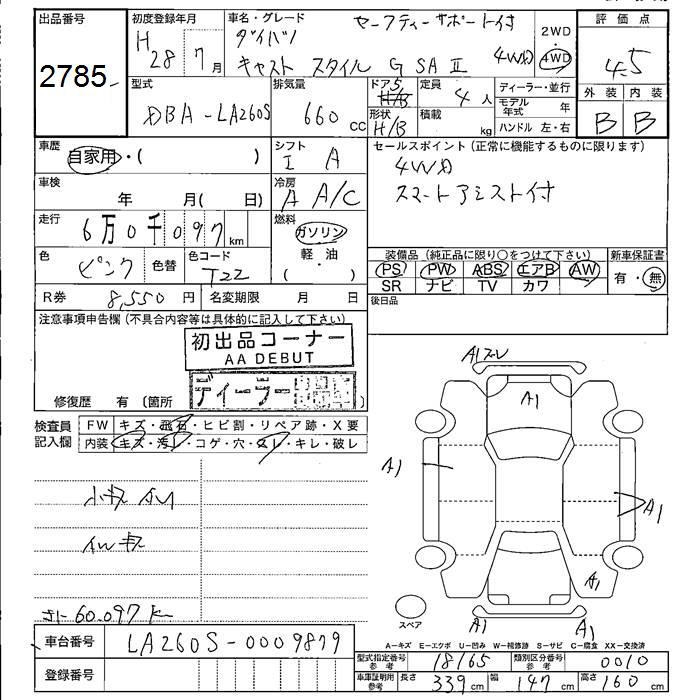 出品番号 初度登録年月 車名・グレード セーフティーサポート付 2WD 評価点
2785 H28 7月 ダイハツ 4WD 4.5
キャスト スタイル G SAⅡ 4WD
型式 排気量 ドア5 定員 ディーラー・並行 外装 内装
DBA-LA260S 660cc H/B 4人 モデル年式 年 B B
形状 積載 ハンドル 左・右
H/B kg
車歴 シフト セールスポイント(正常に機能するものに限ります)
自家用・( ) I A 4WD
車検 冷房 スマートアシスト付
年 月( 日) A A/C
走行 燃料
6万0千097km ガソリン
色 色替 色コード 軽・油 装備品(純正品に限り○をつけて下さい) 新車保証書
ピンク T22 ( ) PS PW ABS エアB AW 有・無
SR ナビ TV カワ
R券 8,550円 名変期限 月 日 後日品
注意事項申告欄(不具合内容等は具体的に記入して下さい)
初出品コーナー
AA DEBUT
ディーラー
修復歴 有(箇所
検査員記入欄 FW キズ・飛石・ヒビ割・リペア跡・X要
内装 キズ・汚レ・コゲ・穴・スレ・キレ・破レ
A1
A1
A1
A1
小キズ
AWキズ
60.097K
スペア
A1
A1
A-キズ E-エクボ U-凹み W-補修跡 S-サビ C-腐食 XX-交換済
車台番号 LA260S-0009879
型式指定番号参考 18165 類別区分番号参考 0010
登録番号
車庫証明用参考 長さ 339cm 幅 147cm 高さ 160cm